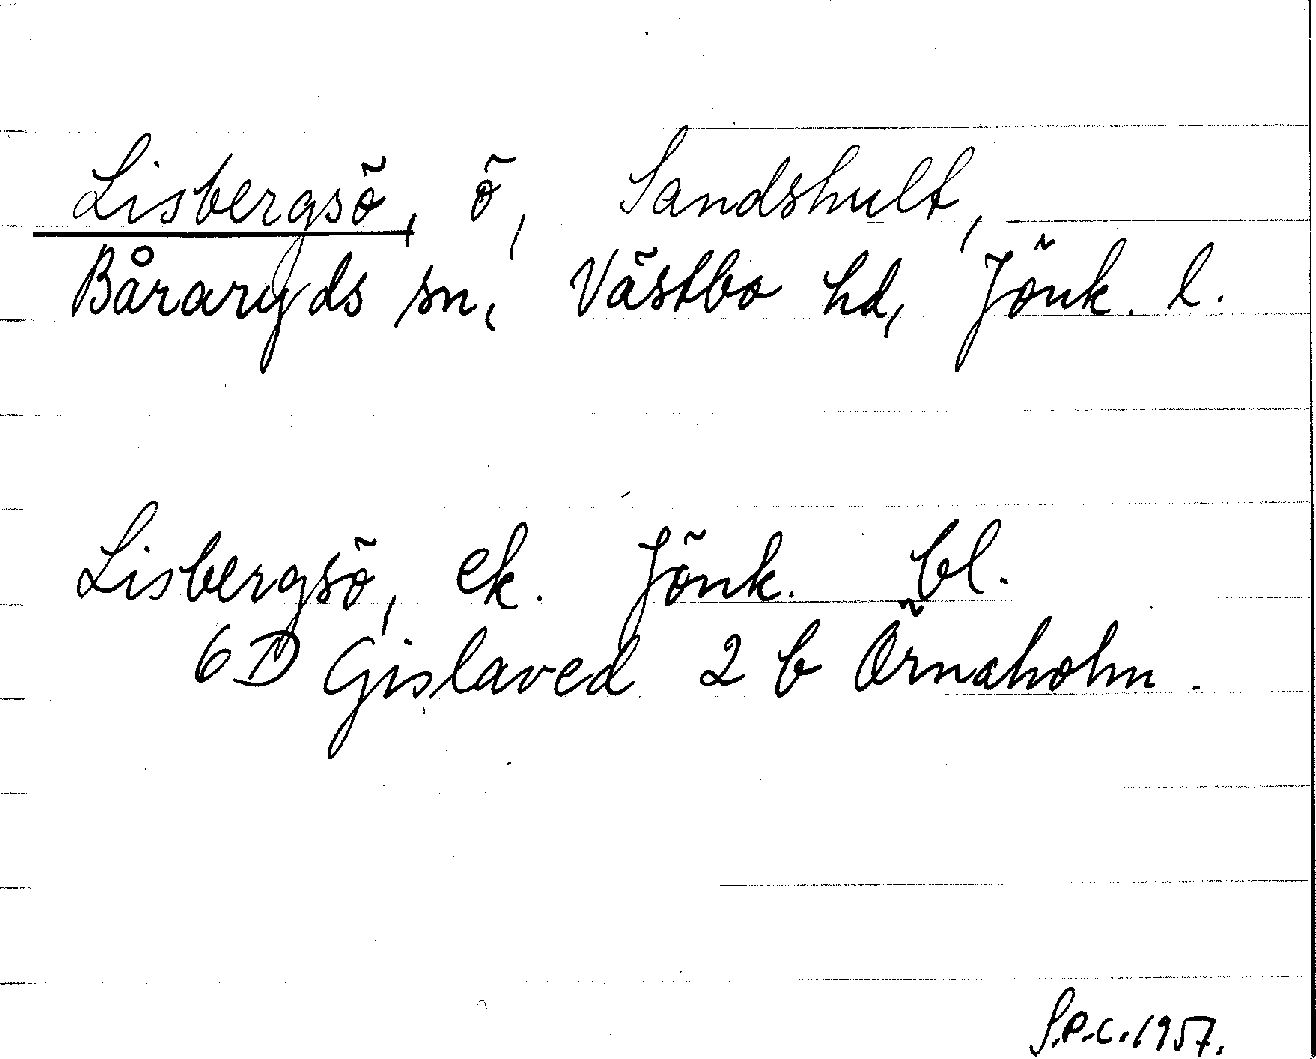 Lisbergsö, ö, Sandshult,
Båraryds sn, Västbo hd, Jönk. l.
Lisbergsö, ek. Jönk. bl.
6 D Gislaved 2 b Örnaholm.
S.P.C. 1957.